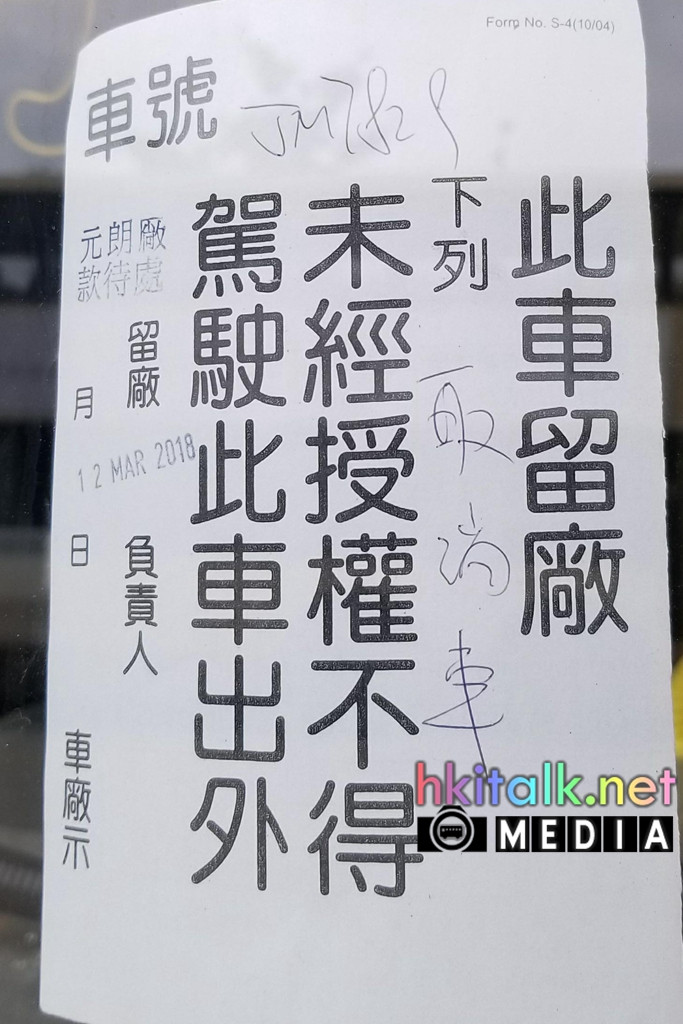 Form No. S-4(10/04)
車號 JM7829
此車留廠
下列
未經授權不得
駕駛此車出外
留廠 負責人
元朗廠
款待處
月 日 車廠示
12 MAR 2018
hkitalk.net
MEDIA